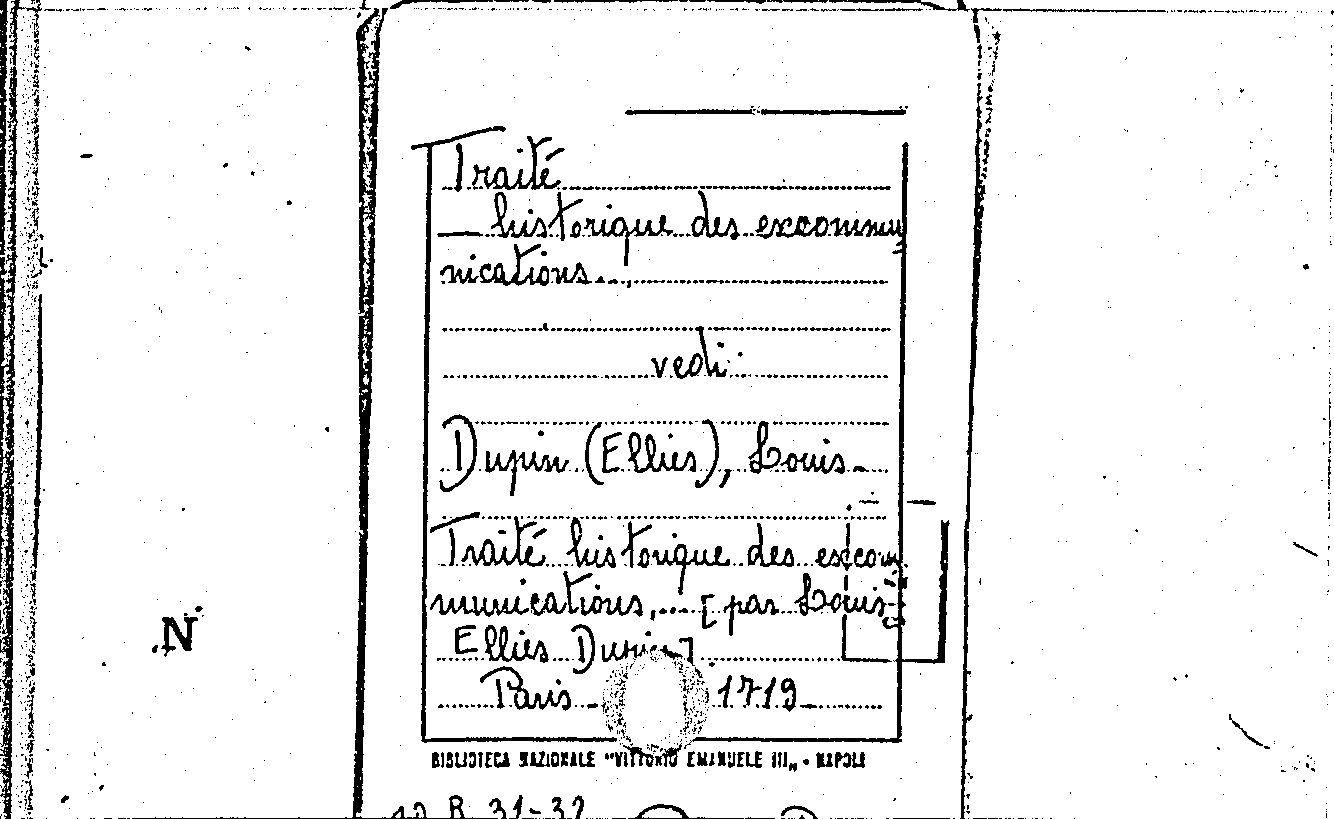 Traité
— historique des excommu
nications...
vedi:
Dupin (Ellies), Louis-
Traité historique des excom
munications,... [par Louis-
Ellies Dupin]
Paris - 1719
N
BIBLIOTECA NAZIONALE "VITTORIO EMANUELE III„ - NAPOLI
B 31-32